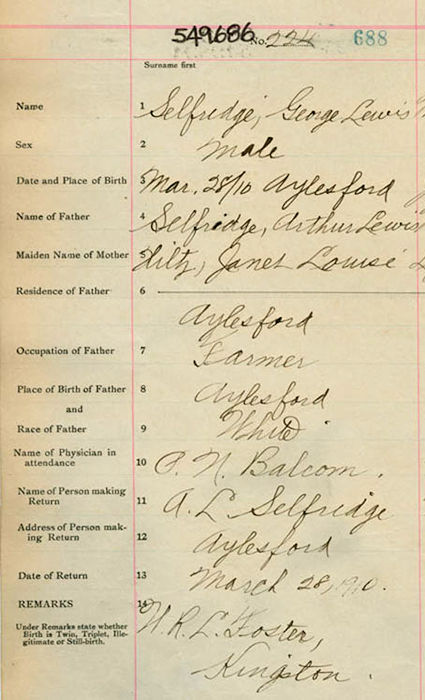 549686 No. 224 688
Surname first
Name 1 Selfridge, George Lewis
Sex 2 Male
Date and Place of Birth 3 Mar. 28/10 Aylesford
Name of Father 4 Selfridge, Arthur Lewis
Maiden Name of Mother 5 Hiltz, Janet Louise
Residence of Father 6
Aylesford
Occupation of Father 7 Farmer
Place of Birth of Father 8 Aylesford
and
Race of Father 9 White
Name of Physician in
attendance 10 P. N. Balcom.
Name of Person making
Return 11 A. L. Selfridge
Address of Person mak-
ing Return 12 Aylesford
Date of Return 13 March 28, 1910.
REMARKS 14
Under Remarks state whether
Birth is Twin, Triplet, Ille-
gitimate or Still-birth.
W. R. L. Foster,
Kingston.